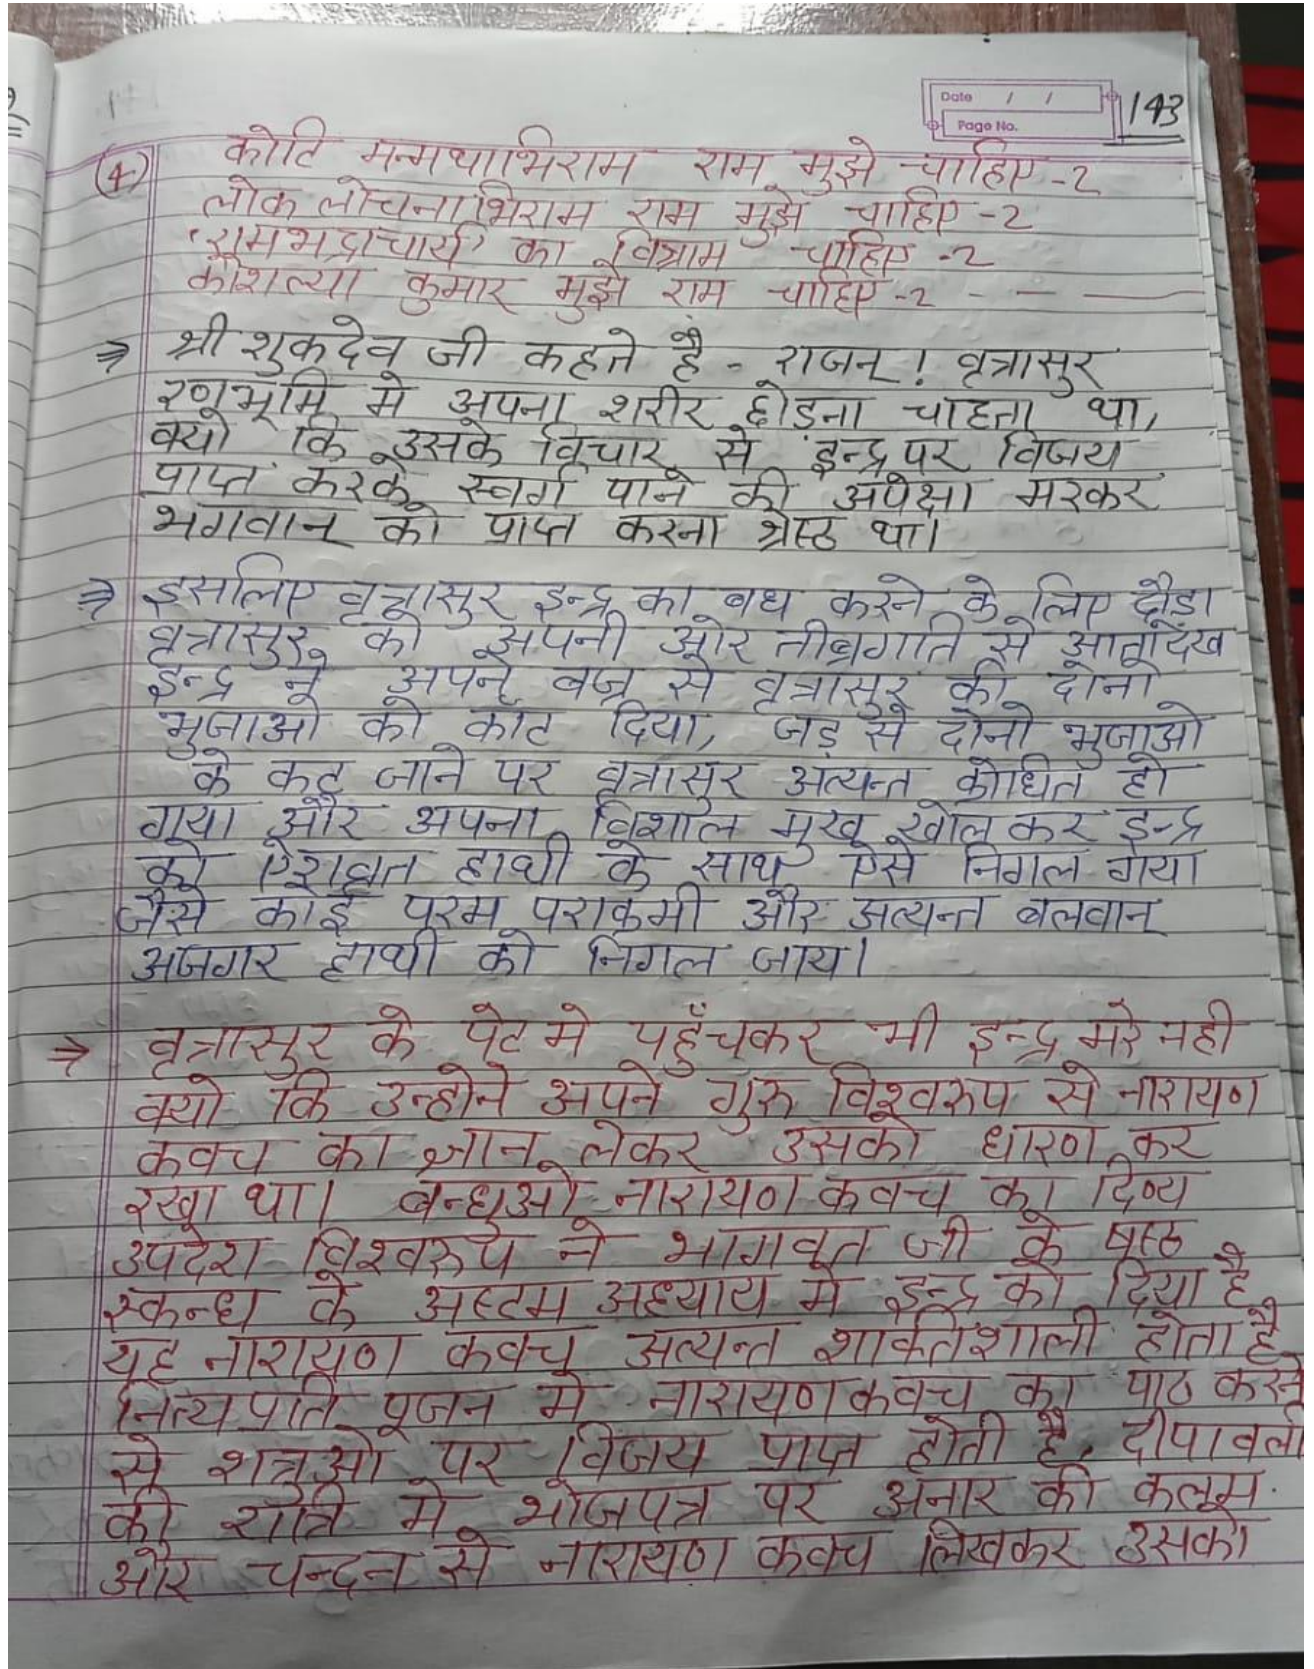 Date / /
Page No.
143
(4) कोटि मन्मथाभिराम राम मुझे चाहिए -2
लोक लोचनाभिराम राम मुझे चाहिए -2
'रामभद्राचार्य' का विश्राम चाहिए -2
कौशल्या कुमार मुझे राम चाहिए -2 - - —
⇒ श्री शुकदेव जी कहते है - राजन् ! वृत्रासुर
रणभूमि मे अपना शरीर छोड़ना चाहता था,
क्यो कि उसके विचार से इन्द्र पर विजय
प्राप्त करके स्वर्ग पाने की अपेक्षा मरकर
भगवान् को प्राप्त करना श्रेष्ठ था।
⇒ इसलिए वृत्रासुर इन्द्र का बध करने के लिए दौड़ा
वृत्रासुर को अपनी ओर तीब्रगति से आता देख
इन्द्र ने अपने बज्र से वृत्रासुर की दोनो
भुजाओ को काट दिया, जड़ से दोनो भुजाओ
के कट जाने पर वृत्रासुर अत्यन्त क्रोधित हो
गया और अपना विशाल मुख खोल कर इन्द्र
को ऐरावत हाथी के साथ ऐसे निगल गया
जैसे कोई परम पराक्रमी और अत्यन्त बलवान
अजगर हाथी को निगल जाय।
⇒ वृत्रासुर के पेट मे पहुँचकर भी इन्द्र मरे नही
क्यो कि उन्होने अपने गुरु विश्वरुप से नारायण
कवच का ज्ञान लेकर उसको धारण कर
रखा था। बन्धुओ नारायण कवच का दिव्य
उपदेश विश्वरुप ने भागवत जी के षष्ठ
स्कन्ध के अष्टम अध्याय मे इन्द्र को दिया है
यह नारायण कवच अत्यन्त शक्तिशाली होता है
नित्य प्रति पूजन मे नारायण कवच का पाठ करने
से शत्रुओ पर विजय प्राप्त होती है, दीपावली
की रात्रि मे भोजपत्र पर अनार की कलम
और चन्दन से नारायण कवच लिखकर उसको